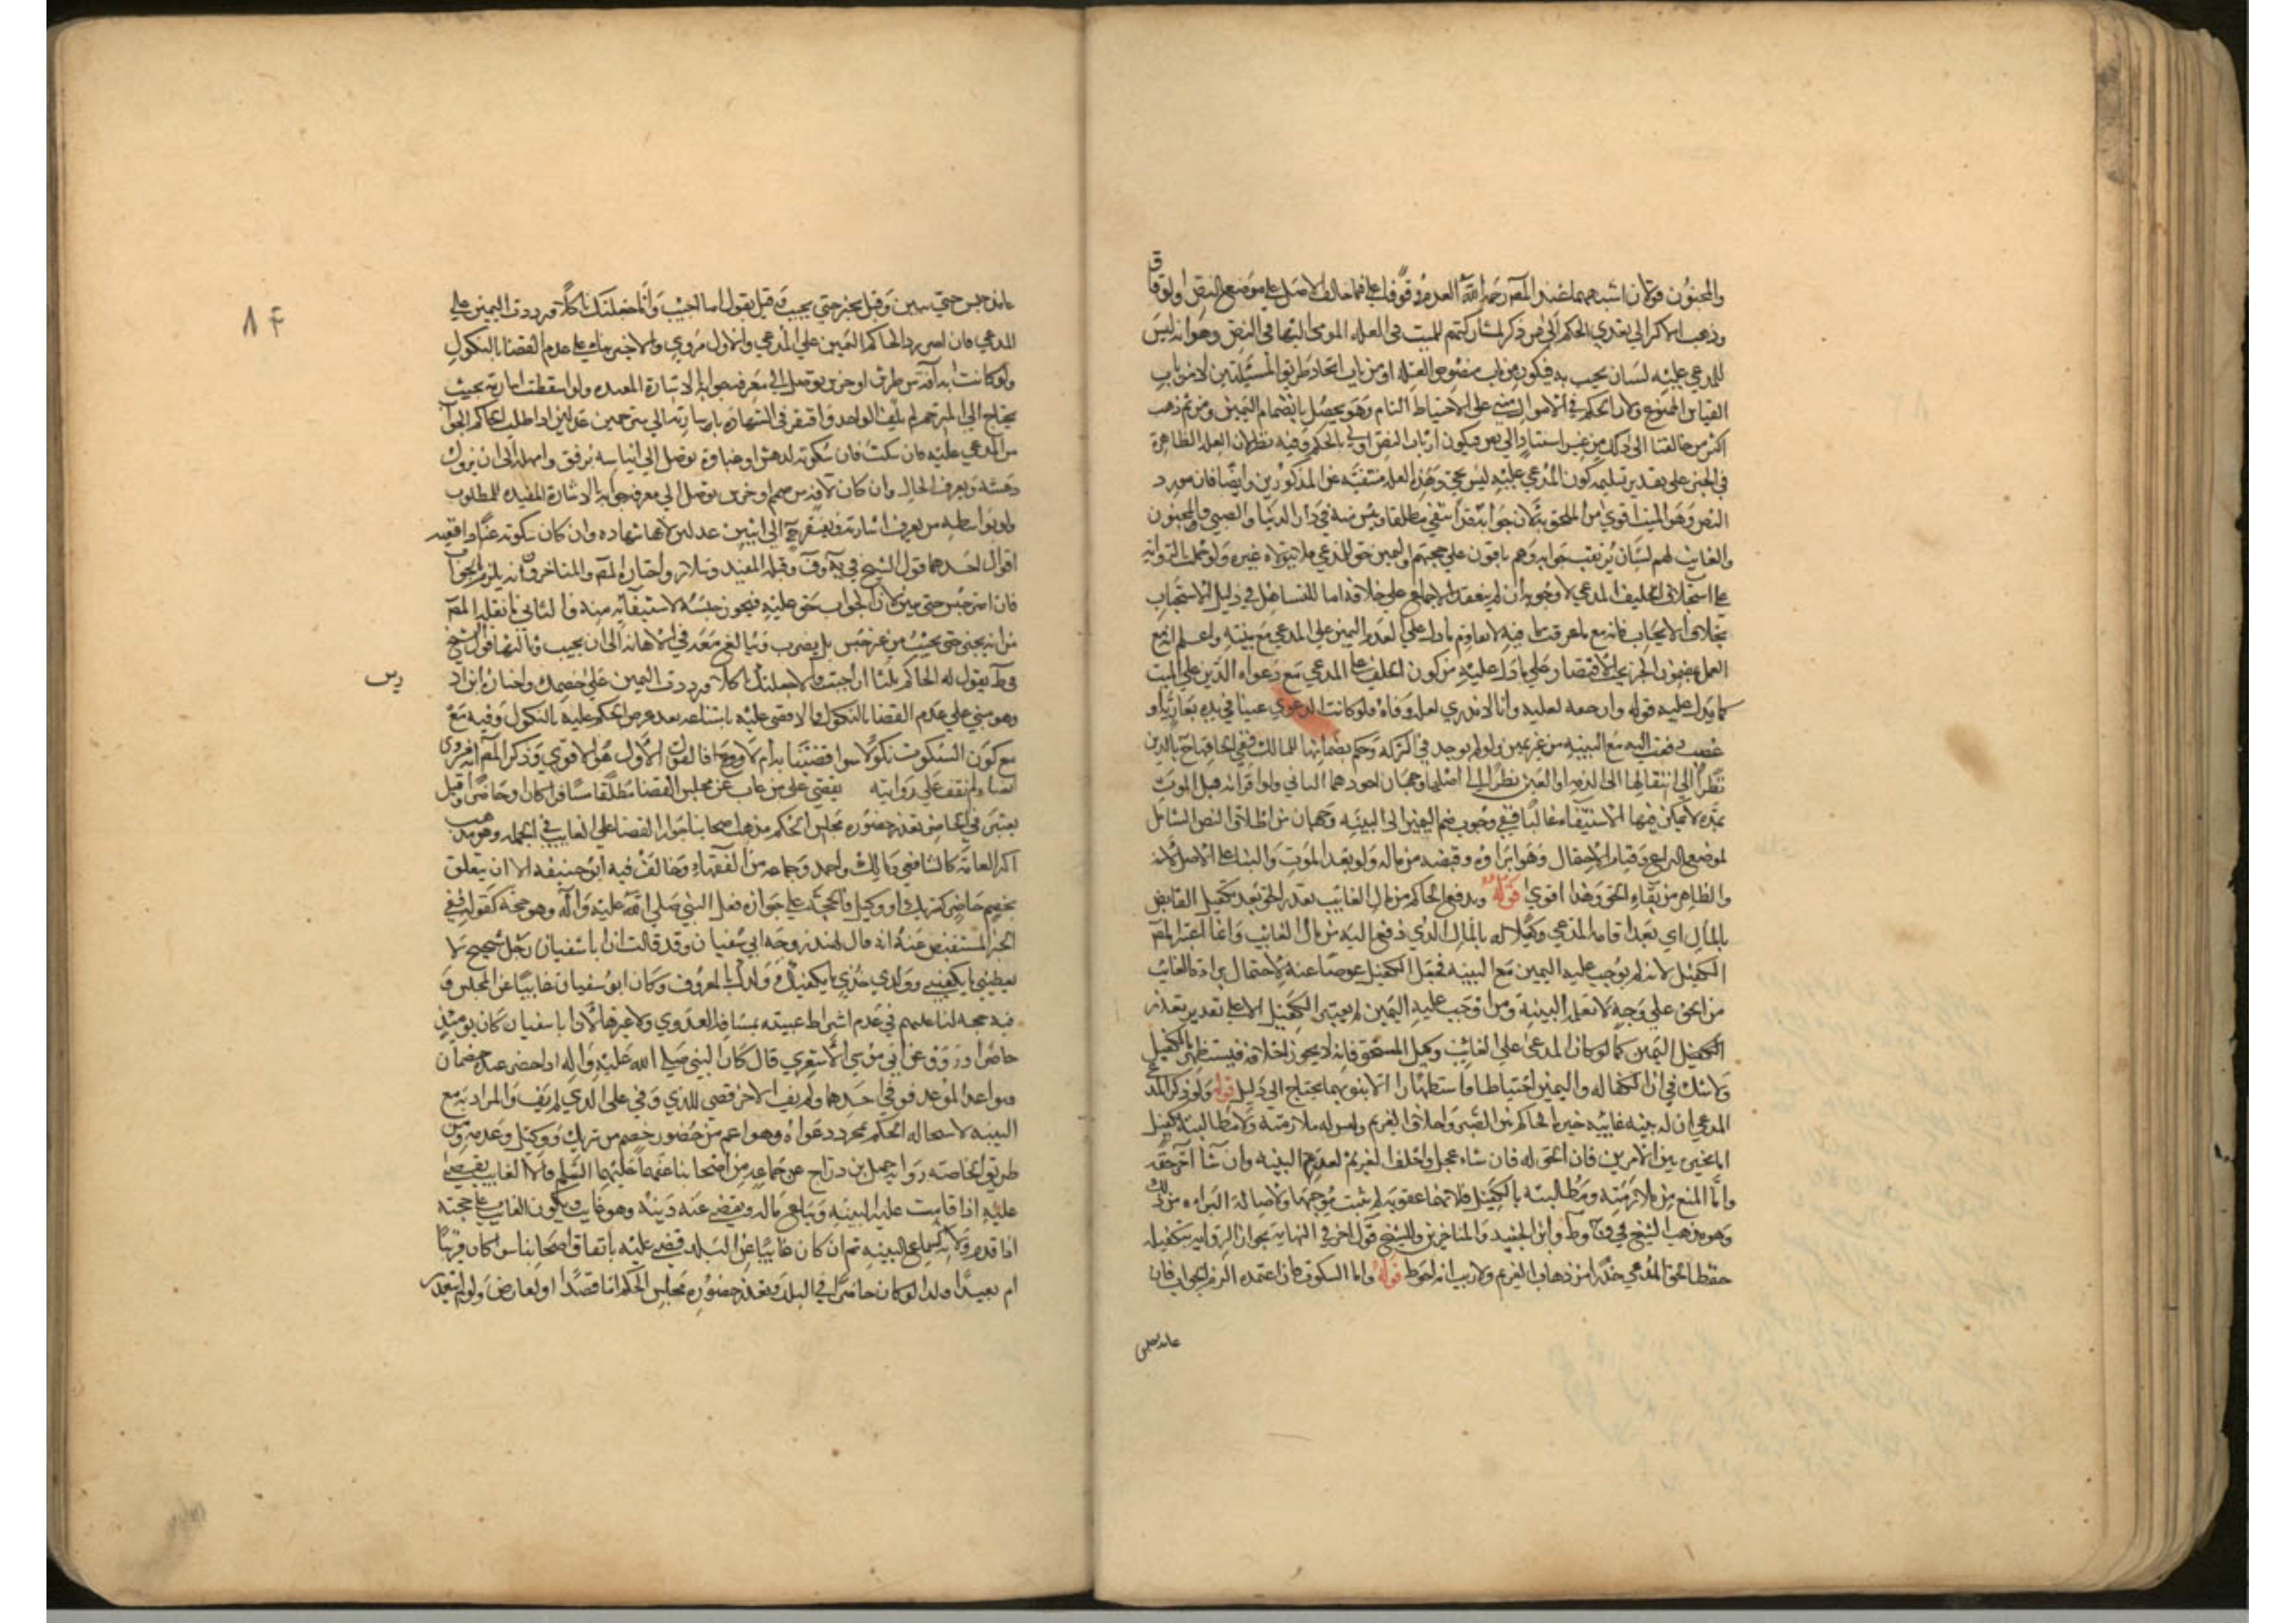 والمجنون قولان اشبههما عند المصنف رحمه الله العدم وقوفا فيما خالف الاصل على موضع النص او لو فاق
وذهب الاكثر الى تعدي الحكم الى من ذكر لمشاركتهم للميت في العلة المومى اليها في النص وهو انه ليس
للمدعى عليه لسان يجيب به فيكون من باب منصوص العلة او من باب اتحاد طريق المسئلتين لا من باب
القياس الممنوع ولان الحكم في الاموال مبني على الاحتياط التام وهو يحصل بانضمام اليمين ومن ثم ذهب
اكثر من خالفنا الى ذلك من غير استناد الى نص فيكون ارباب النص اولى بالحكم وفيه نظر لان العلة الظاهرة
في الخبر على تقدير تسليمه كون المدعى عليه ليس بحي وهذه العلة منتفية عن المذكورين وايضا فان مورد
النص وهو الميت اقوى من الملحق به لان جوابه قد انتفى مطلقا ويئس منه في دار الدنيا والصبي والمجنون
والغايب لهم لسان يرتقب جوابه وهم باقون على حجتهم واليمين حق للمدعي فلا يتولاه غيره ولو حملت الرواية
على استحباب تحليف المدعي لا وجوبه ان لم ينعقد الاجماع على خلافه اما للتساهل في دليل الاستحباب
بخلاف الايجاب فانه مع ما عرفت مما فيه لا يقاوم ما دل على عدم اليمين على المدعي مع بينته واعلم ان مع
العمل بمضمون الخبر يجب الاقتصار على ما دل عليه من كون الحلف على المدعي مع دعواه الدين على الميت
كما يدل عليه قوله وان حقه لعليه وانا لا ندري لعله وفاه فلو كانت الدعوى عينا في يده بعارية او
غصب دفعت اليه مع البينة من غير يمين ولو لم يوجد في التركة وحكم بضمانها للمالك ففي الحاقها ح بالدين
نظرا الى انتقالها الى الذمة او العين نظرا الى اصلها وجهان اجودهما الثاني ولو اقر له قبل الموت
بمدة لا يمكن فيها الاستيفاء غالبا ففي وجوب ضم اليمين الى البينة وجهان من اطلاق النص الشامل
لموضع النزاع وقيام الاحتمال وهو ابراؤه وقبضه من ماله ولو بعد الموت والبناء على الاصل لانه
والظاهر من بقاء الحق وهذا اقوى قوله ويدفع الحاكم من مال الغايب بقدر الحق بعد تكفيل القابض
بالمال اي بعد اقامة المدعي وكيلا له بالمال الذي دفع اليه من مال الغايب وانما اعتبر المصنف
الكفيل لانه لم يوجب عليه اليمين مع البينة فجعل الكفيل عوضا عنه لاحتمال براءة الغايب
من الحق على وجه لا تعلمه البينة ومن اوجب عليه اليمين لم يعتبر الكفيل الا على تقدير تعذر
اليمين كما لو كان المدعي على الغايب وكيل المستحق فانه لا يجوز احلافه فيستظهر بالكفيل
ولا شك في ان الكفالة واليمين احتياطا واستظهارا الا ان ثبوتهما يحتاج الى دليل قوله ولو ذكر المدعي
المدعي ان له بينة غايبة خيره الحاكم بين الصبر واحلاف الغريم وليس له ملازمته ولا مطالبته بكفيل
اما تخييره بين الامرين فان الحق له فان شاء عجل واحلف الغريم لعدم البينة وان شاء اخر حقه
واما المنع من ملازمته ومطالبته بالكفيل فلانها عقوبة لم يثبت موجبها ولاصالة البراءة من ذلك
وهو مذهب الشيخ في ف وط وابن الجنيد والمتاخرين وللشيخ قول اخر في النهاية بجواز الزامه بتكفيله
حفظا لحق المدعي حذرا من ذهاب الغريم ولا ريب انه احوط قوله واما السكوت فان اعتمده الزم الجواب فان
عاند حبس
٨٤
عاند حبس حتى يبين وقيل يجبر حتى يجيب وقيل يقول اما اجبت والا جعلتك ناكلا ورددت اليمين على
المدعي فان اصر رد الحاكم اليمين على المدعي والاول مروي والاخير بناء على عدم القضا بالنكول
ولو كانت به آفة من طرش او خرس توصل الى معرفة جوابه بالاشارة المفيدة ولو استغلقت اشارته بحيث
يحتاج الى المترجم لم يكف الواحد وافتقر في الشهادة باشارته الى مترجمين عدلين اذا طلب الحاكم الجواب
من المدعى عليه فان سكت فان سكوته لدهش او غباوة توصل الى ايناسه برفق وامهله الى ان يزول
دهشه ويعرف الحال وان كان لآفة من صمم او خرس توصل الى معرفة جوابه بالاشارة المفيدة للمطلوب
ولو بواسطة من يعرف اشارته ويفتقر ح الى اثنين عدلين لانها شهادة وان كان سكوته عنادا فيه
اقوال احدها قول الشيخ في يه وف وقبله المفيد وسلار واختاره المصنف والمتاخرون انه يلزم بالجواب
فان امتنع حبس حتى يبين لان الجواب حق عليه فيجوز حبسه لاستيفائه منه والثاني ما نقله المصنف
من انه يجبر حتى يجيب من غير حبس بل يضرب ويبالغ معه في الاهانة الى ان يجيب وثالثها قول الشيخ
في ط يقول له الحاكم ثلثا ان اجبت والا جعلتك ناكلا ورددت اليمين على خصمك واختاره ابن ادريس
وهو مبني على عدم القضا بالنكول والا قضى عليه بامتناعه بعد عرض الحكم عليه بالنكول وفيه مع
مع كون السكوت نكولا سواء قضينا به ام لا وجعله فالقول الاول هو الاقوى وذكر المصنف انه مروي
ايضا ولم نقف على روايته يقضى على من غاب عن مجلس القضا مطلقا مسافرا كان او حاضرا وقيل
يعتبر في الحاضر تعذر حضوره مجلس الحكم مذهب اصحابنا جواز القضا على الغايب في الجملة وهو مذهب
اكثر العامة كالشافعي ومالك واحمد وجماعة من الفقهاء وخالف فيه ابو حنيفة الا ان يتعلق
بخصم حاضر كشريك او وكيل والحجة على جوازه فعل النبي صلى الله عليه وآله وهو حجة كقوله ففي
الخبر المستفيض عنه انه قال لهند زوجة ابي سفيان وقد قالت ان ابا سفيان رجل شحيح لا
يعطيني ما يكفيني وولدي خذي ما يكفيك وولدك بالمعروف وكان ابو سفيان غايبا عن المجلس و
فيه حجة لنا عليهم في عدم اشتراط غيبته بمسافة العدوى ولا غيرها لان ابا سفيان كان يومئذ
حاضرا وروي عن ابي موسى الاشعري قال كان النبي صلى الله عليه وآله اذا حضر عنده خصمان
فتواعدا الموعد فوفى احدهما ولم يف الاخر قضى للذي وفى على الذي لم يف والمراد به مع
البينة لاستحالة الحكم بمجرد دعواه وهو اعم من حضور خصم من شريك ووكيل وعدمه ومن
طريق الخاصة رواية جميل بن دراج عن جماعة من اصحابنا عنهما عليهما السلم قالا الغايب يقضى
عليه اذا قامت عليه البينة ويباع ماله ويقضى عنه دينه وهو غايب ويكون الغايب على حجته
اذا قدم ولانه يسمع البينة ثم ان كان غايبا عن البلد قضى عليه باتفاق اصحابنا سواء كان قريبا
ام بعيدا وكذا لو كان حاضرا في البلد وتعذر حضوره مجلس الحكم اما قصدا او لعارض ولو لم يتعذر